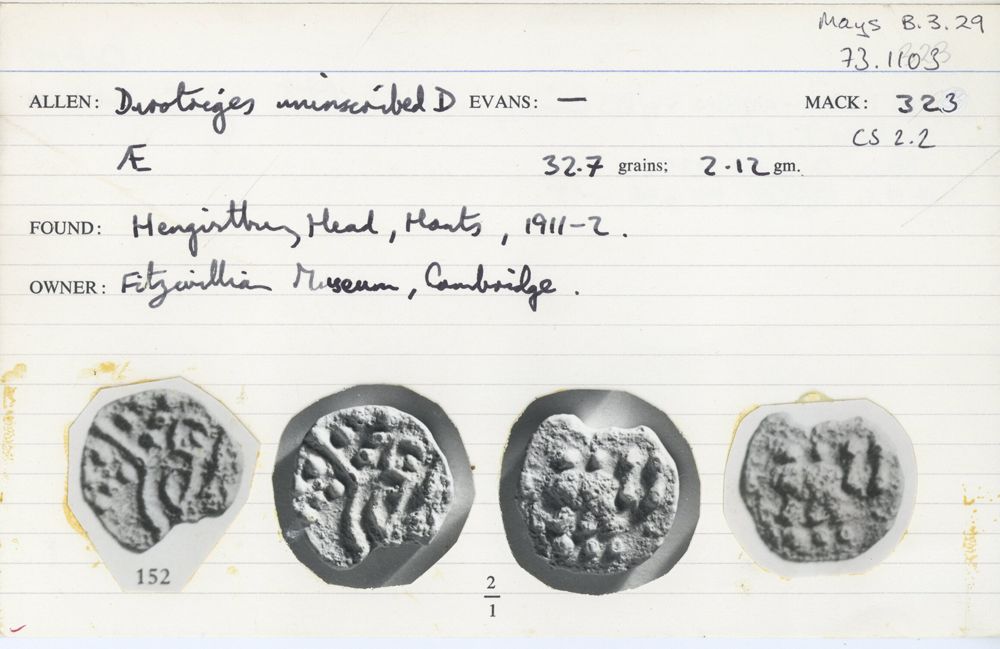 Mays B.3.29
73.1103
ALLEN: Durotriges uninscribed D EVANS: — MACK: 323
CS 2.2
Æ 32.7 grains; 2.12 gm.
FOUND: Hengistbury Head, Hants, 1911-2.
OWNER: Fitzwilliam Museum, Cambridge.
152
2
1